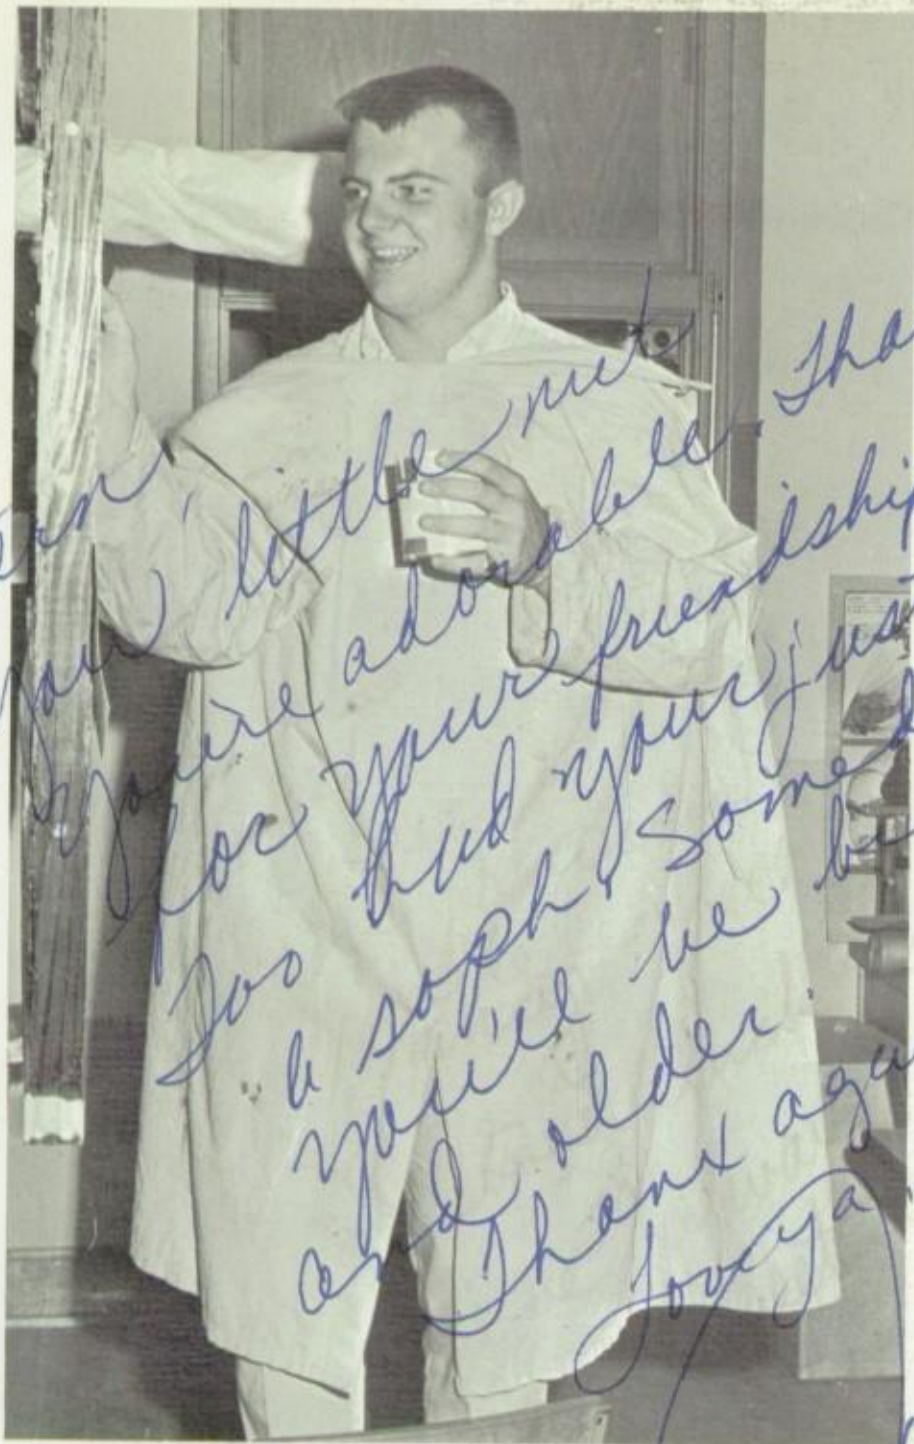 ern
You little nut
you're adorable. Tha
for your friendship
Too bad your just
a soph, somed
you'll be bi
and older.
Thanx aga
Love ya